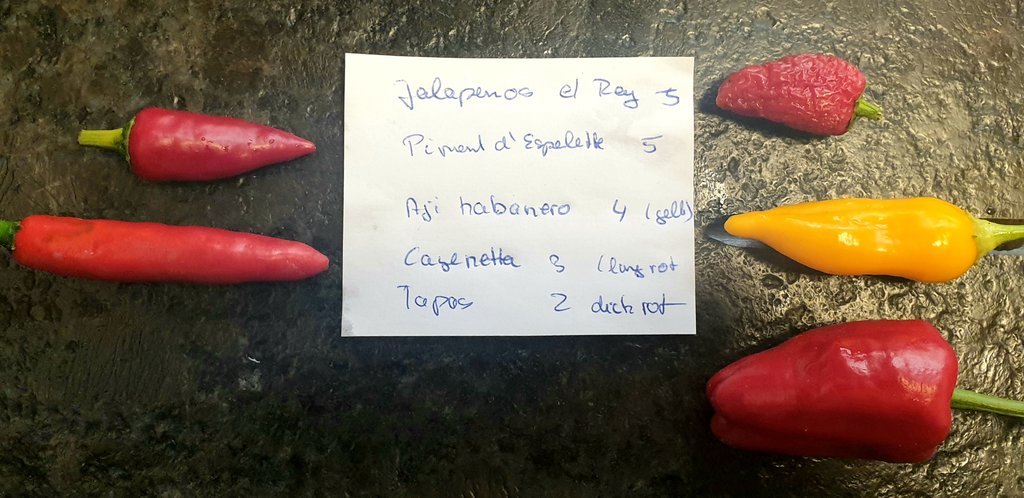 Jalapenos el Rey 5
Piment d'Espelette 5
Aji habanero 4 (gelb)
Cayenetta 3 (lang rot
Tapas 2 dick rot